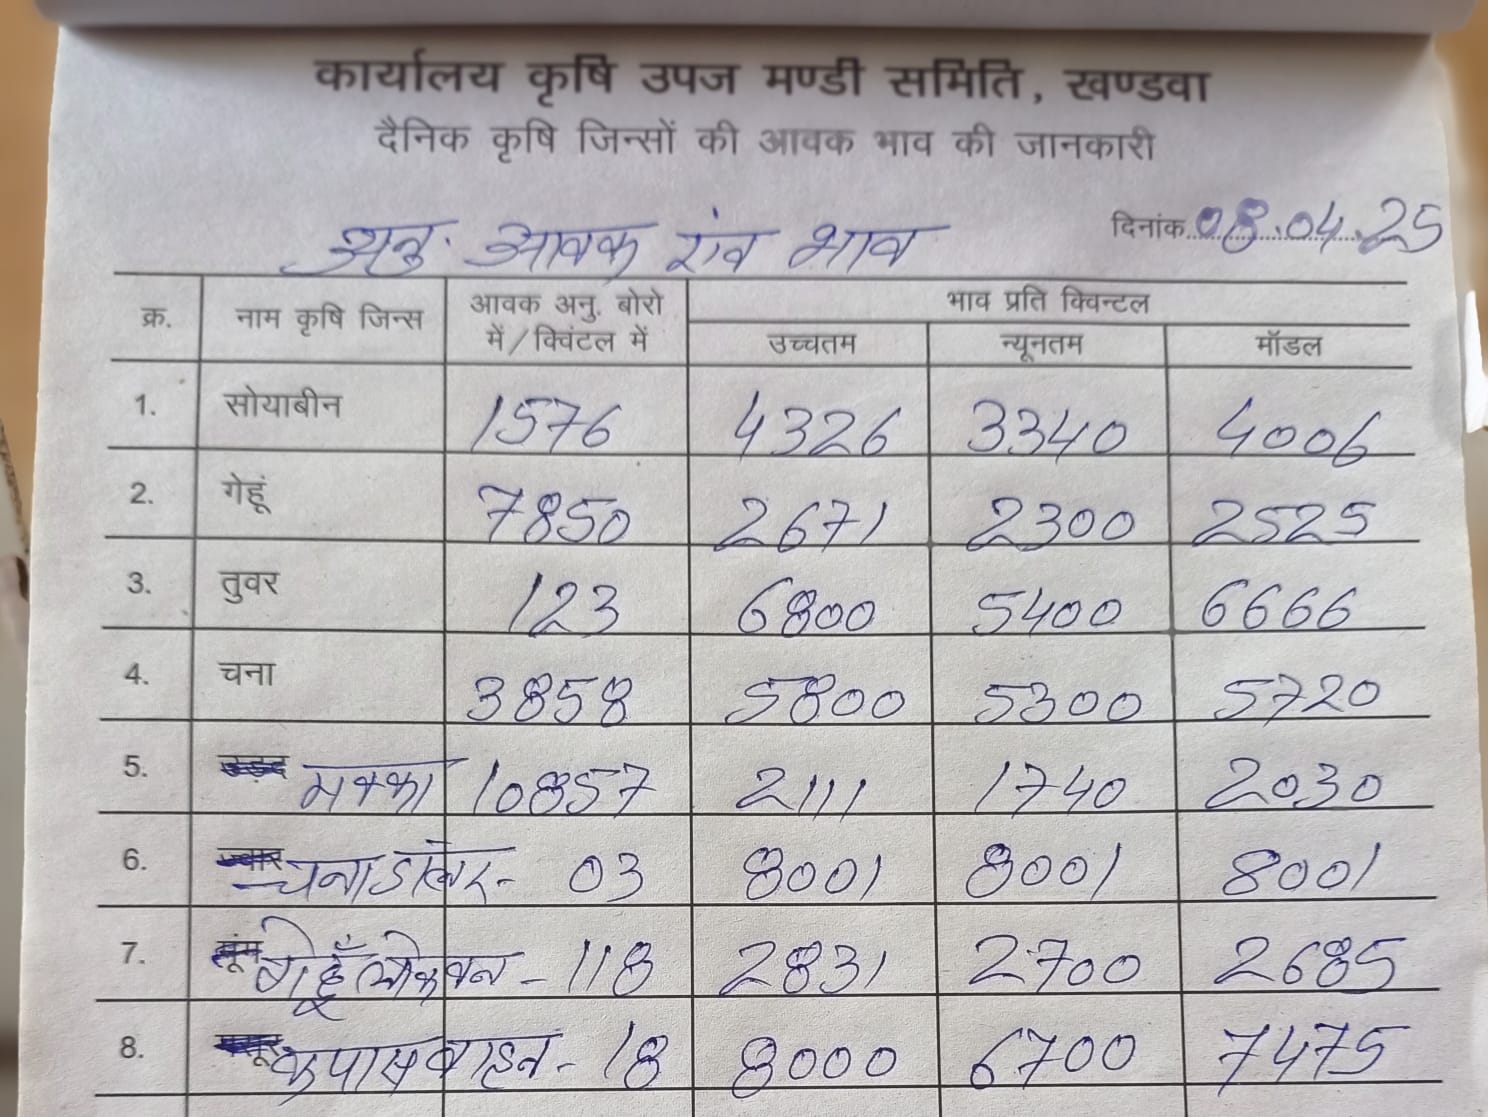 कार्यालय कृषि उपज मण्डी समिति, खण्डवा
दैनिक कृषि जिन्सों की आवक भाव की जानकारी
अनु. आवक एंव भाव दिनांक 08.04.25
क्र. नाम कृषि जिन्स आवक अनु. बोरो में/क्विंटल में भाव प्रति क्विन्टल
उच्चतम न्यूनतम मॉडल
1. सोयाबीन 1576 4326 3340 4006
2. गेहूं 7850 2671 2300 2525
3. तुवर 123 6800 5400 6666
4. चना 3858 5800 5300 5720
5. उड़द मक्का 10857 2111 1740 2030
6. ज्वार चना डालर - 03 8001 8001 8001
7. मूंग गेहूँ लोकवन - 118 2831 2700 2685
8. मसूर कपास वाहन - 18 8000 6700 7475